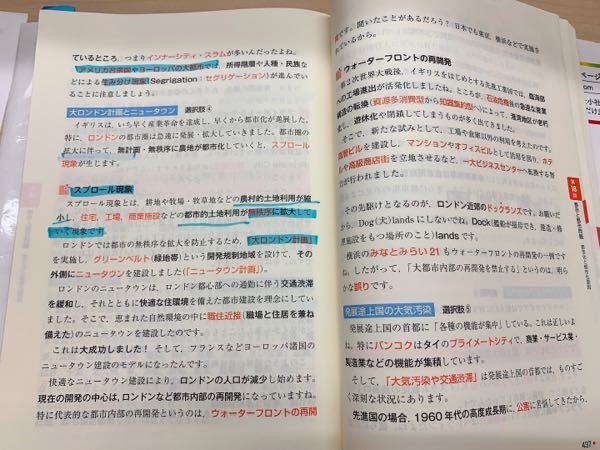 ているところ。つまりインナーシティ・スラムが多いんだったよね。
アメリカ合衆国やヨーロッパの大都市では、所得階層や人種・民族な
どによる住み分け現象(Segrigation:セグリゲーション)が進んでいる
ことに注意しましょう。
大ロンドン計画とニュータウン 選択肢④
イギリスは、いち早く産業革命を達成し、早くから都市化が進展した。
特に、ロンドンの都市圏は急速に発展・拡大していきました。都市圏の
拡大に伴って、無計画・無秩序に農地が都市化していくと、スプロール
現象が生じます。
スプロール現象
スプロール現象とは、耕地や牧場・牧草地などの農村的土地利用が縮
小し、住宅、工場、商業施設などの都市的土地利用が無秩序に拡大して
いく現象です。
ロンドンでは都市の無秩序な拡大を防止するため、「大ロンドン計画」
を実施し、グリーンベルト(緑地帯)という開発規制地域を設けて、そ
の外側にニュータウンを建設しました(「ニュータウン計画」)。
ロンドンのニュータウンは、ロンドン都心部への通勤に伴う交通渋滞
を緩和し、それとともに快適な住環境を備えた都市建設を理念にしてい
ました。そこで、恵まれた自然環境の中に職住近接(職場と住居を兼ね
備えた)のニュータウンを建設したのです。
これは大成功しました!そして、フランスなどヨーロッパ諸国の
ニュータウン建設のモデルになったんです。
快適なニュータウン建設により、ロンドンの人口が減少し始めます。
現在の開発の中心は、ロンドンなど都市内部の再開発になっていますね。
特に代表的な都市内部の再開発というのは、ウォーターフロントの再開
です。聞いたことがあるだろう?日本でも東京、横浜などで実施さ
れているから。
ウォーターフロントの再開発
第2次世界大戦後、イギリスをはじめとする先進工業国では、臨海部
への工場進出が活発化しました。ところが、石油危機後の急速な産業
構造の転換(資源多消費型から知識集約型へ)によって、港湾地区が老朽
し、遊休化や閉鎖してしまうものが多く出てきたのです。
そこで、新たな試みとして、工場や倉庫以外の利用を考えたのです。
高層ビルを建設し、マンションやオフィスビルとして活用を図り、ホテ
ルや高級商店街を立地させるなど、一大ビジネスセンターへ転換する努
が行われました。
その先駆けとなるのが、ロンドン近郊のドックランズです。お願いだ
から、Dog(犬)landsにしないでね。Dock(艦船が据荷でき、造船・修
理施設をもつ場所のこと)landsです。
横浜のみなとみらい21もウォーターフロントの再開発の一例です
ね。したがって、「大都市内部の再開発を禁止する」というのは、明らか
な誤りです。
発展途上国の大気汚染 選択肢⑤
発展途上国の首都に、「各種の機能が集中」している。これは正しいよ
ね。特にバンコクはタイのプライメートシティで、商業・サービス業・
製造業などの機能が集積しています。
そして、「大気汚染や交通渋滞」は発展途上国の首都では、ものすご
く深刻な状況にあります。
先進国の場合、1960年代の高度成長期に、公害に苦悩してきたから、
第18回
497